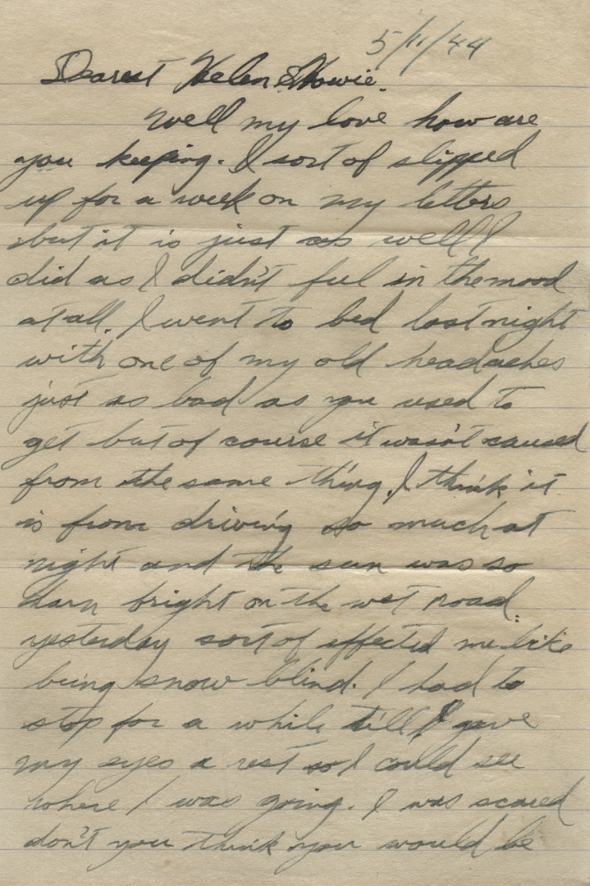 5/11/44
Dearest Helen & Howie.
Well my love how are
you keeping. I sort of slipped
up for a week on my letters
but it is just as well I
did as I didn't feel in the mood
at all. I went to bed last night
with one of my old headaches
just as bad as you used to
get but of course it wasn't caused
from the same thing. I think it
is from driving so much at
night and the sun was so
darn bright on the wet road
yesterday sort of effected me like
being snow blind. I had to
stop for a while till I gave
my eyes a rest so I could see
where I was going. I was scared
don't you think you would be